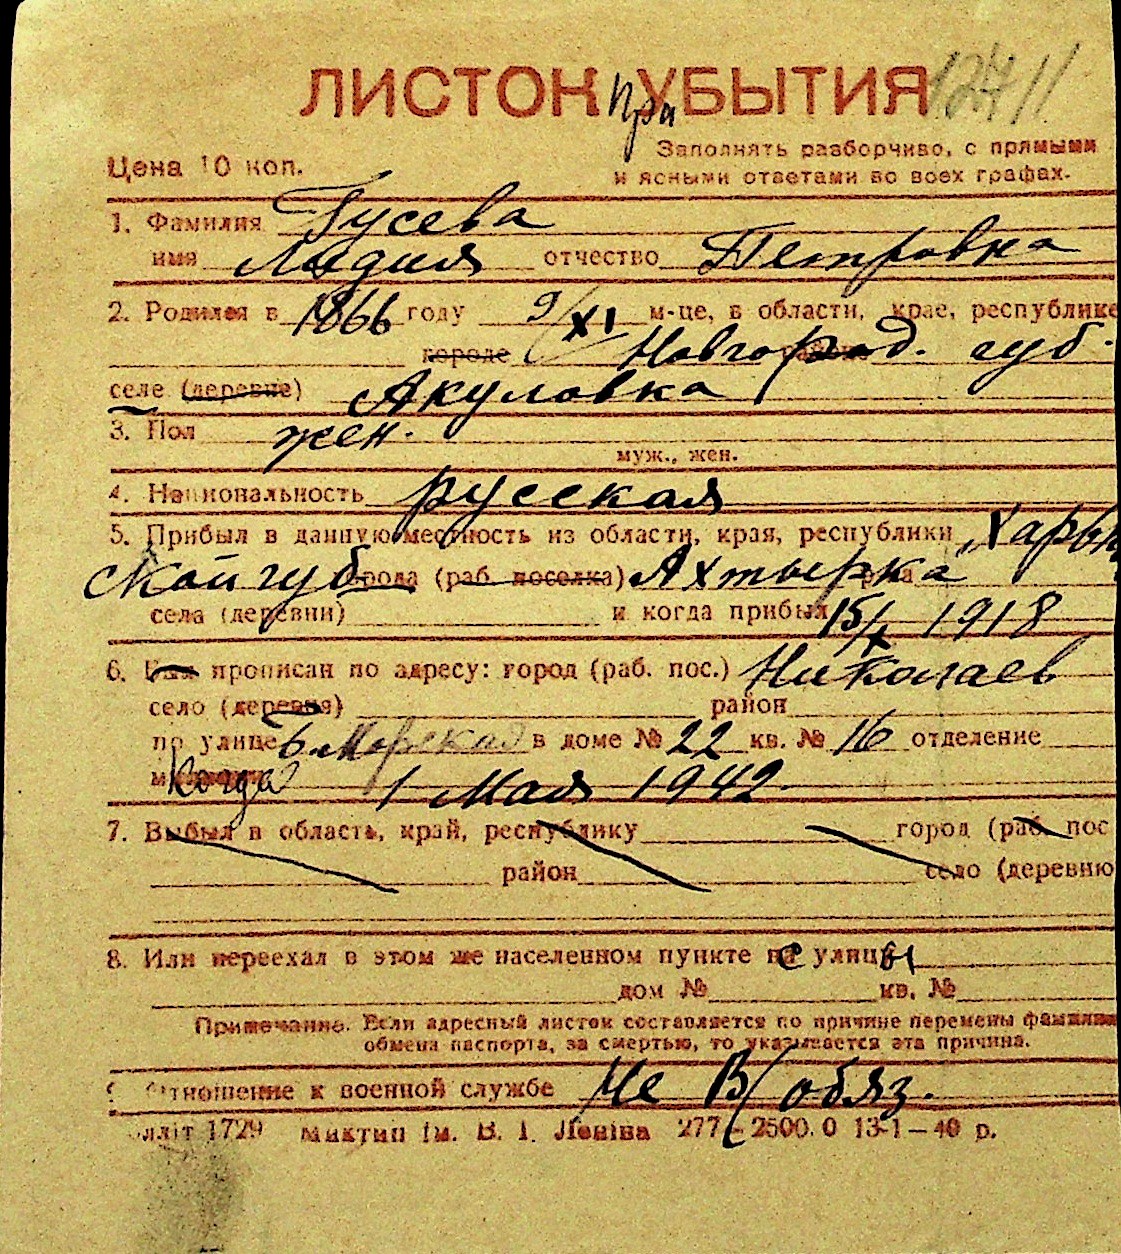 ЛИСТОК При УБЫТИЯ 12711
Цена 10 коп.
Заполнять разборчиво, с прямыми
и ясными ответами во всех графах.
1. Фамилия Гусева
имя Лидия отчество Петровна
2. Родился в 1866 году 9/XI м-це, в области, крае, республике
городе Новгород. губ.
селе (деревне) Акуловка
3. Пол жен.
муж., жен.
4. Национальность русская
5. Прибыл в данную местность из области, края, республики Харьк
ской губ города (раб. поселка) Ахтырка
села (деревни) и когда прибыл 15/X 1918
6. Был прописан по адресу: город (раб. пос.) Николаев
село (деревня) район
по улице Б. Морская в доме № 22 кв. № 16 отделение
Когда 1 Мая 1942.
7. Выбыл в область, край, республику город (раб. пос
район село (деревню
8. Или переехал в этом же населенном пункте с улицы
дом № кв. №
Примечание. Если адресный листок составляется по причине перемены фамилии
обмена паспорта, за смертью, то указывается эта причина.
9 Отношение к военной службе Не В/обяз.
лліт 1729 Миктип ім. В. І. Леніна 277—2500.0 13-1—40 р.